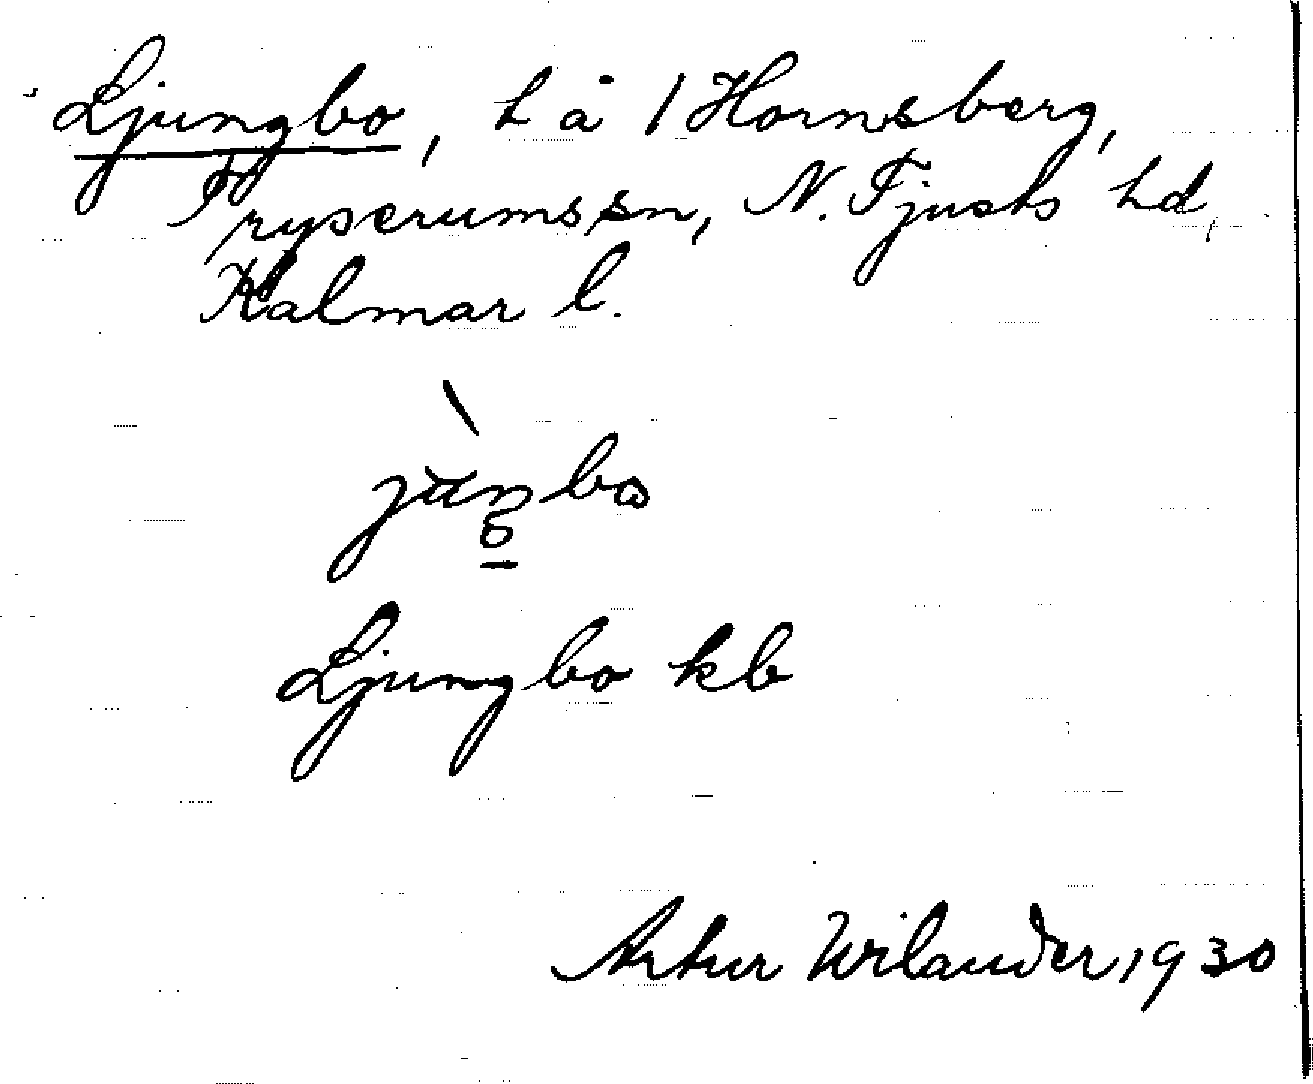 Ljungbo, h å 1 Hornsberg,
Tryserums sn, N. Tjusts hd,
Kalmar l.
Ljungbo kb
Artur Wilander, 1930